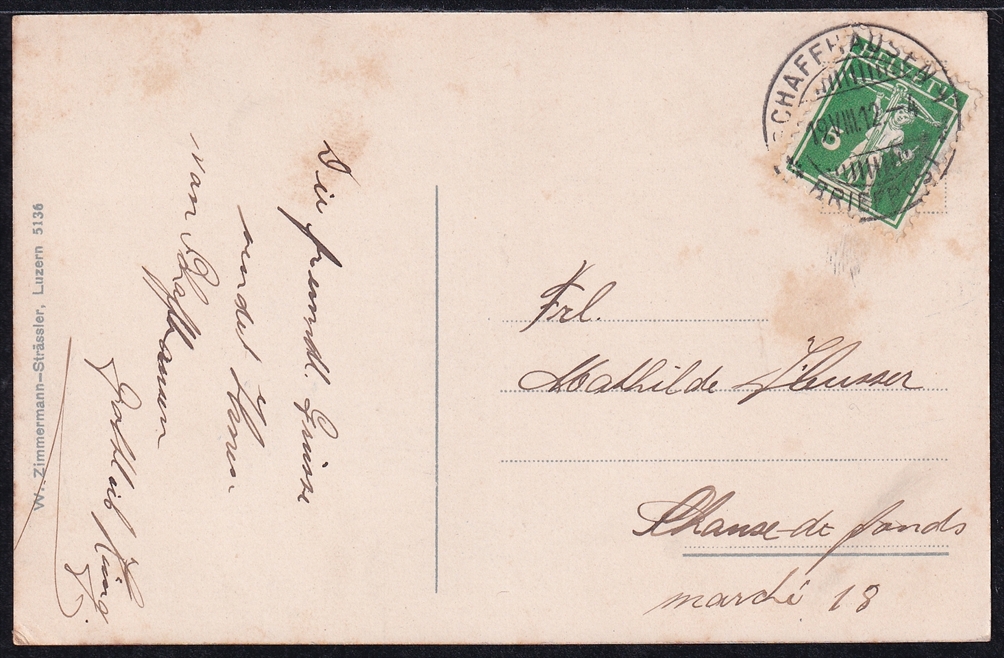 Die freundl. Grüsse
sendet Ihnen
von Schaffhausen
Gottlieb
W. Zimmermann-Strässler, Luzern 5136
SCHAFFHAUSEN
19.VIII.12-4
BRIEF
HELVETIA
5
Frl.
Mathilde
Chaux-de-fonds
marché 18